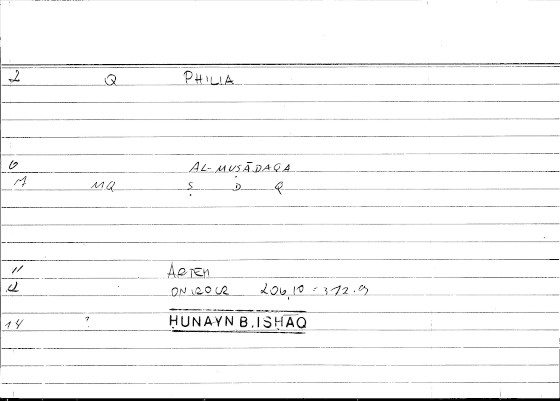 2 Q PHILIA
6 AL-MUṢĀDAQA
7 MQ Ṣ D Q
11 ARTEM
12 ONIROCR 206,10 = 372.9
14 ? HUNAYN B. ISHAQ